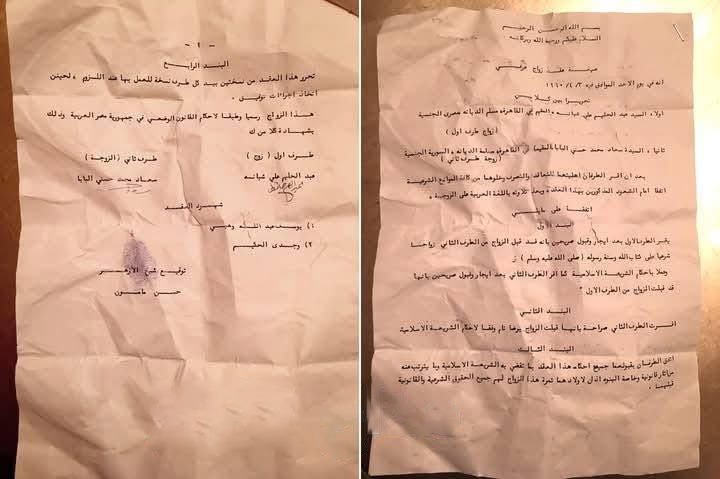 بسم الله الرحمن الرحيم
السلام عليكم ورحمة الله وبركاته
صيغة عقد زواج عرفي
انه في يوم الاحد الموافق فيه ٣/ ٤/ ١٩٦٠
تحريرا بين كلا من
اولا، السيد عبد الحليم علي شبانه ، المقيم في القاهره مسلم الديانه مصرى الجنسية
( زواج طرف اول )
ثانيا ، السيدة سعاد محمد حسني البابا المقيمة في القاهره مسلمة الديانه ، السورية الجنسية
( زوجة طرف ثاني )
بعد ان اقر الطرفان اهليتهما للتعاقد والتصرف وخلوهما من كافة الموانع الشرعية
اتفقا امام الشهود المذكورين بهذا العقد ، وبعد تلاوته باللغة العربية على الزوجية ،
اتفقنا على مايلي
البند الاول
يقر الطرف الاول بعد ايجاب وقبول صريحين بانه قد قبل الزواج من الطرف الثاني زواجا
شرعيا على كتاب الله وسنة رسوله ( صلى الله عليه وسلم )
وعملا باحكام الشريعة الاسلامية كما اقر الطرف الثاني بعد ايجاب وقبول صريحين بانها
قد قبلت الزواج من الطرف الاول
البند الثاني
اقرت الطرف الثاني صراحة بانها قبلت الزواج برضا تام وفقا لاحكام الشريعة الاسلامية
البند الثالث
اقرى الطرفان بقبولهما جميع احكام هذا العقد بما تقضي به الشريعة الاسلامية وما يترتب عنه
من اثار قانونية وخاصة البنوه اذ ان لاولادهما ثمرة هذا الزواج لهم جميع الحقوق الشرعية والقانونية
قبلهما .
البند الرابع
تحرر هذا العقد من نسختين بيد كل طرف نسخة للعمل بها عند اللزوم ، لحينن
اتخاذ اجراءات توثيق .
هذا الزواج رسميا وطبقا لاحكام القانون الوضعي في جمهورية مصر العربية وذلك
بشهادة كلا من ك
طرف اول ( زوج ) طرف ثاني ( الزوجة )
عبد الحليم علي شبانه سعاد محمد حسني البابا
شهود العقد
١) يوسف عبد الله وهبي
٢) وجدى الحكيم
توقيع شيخ الازهر
حسن مامون